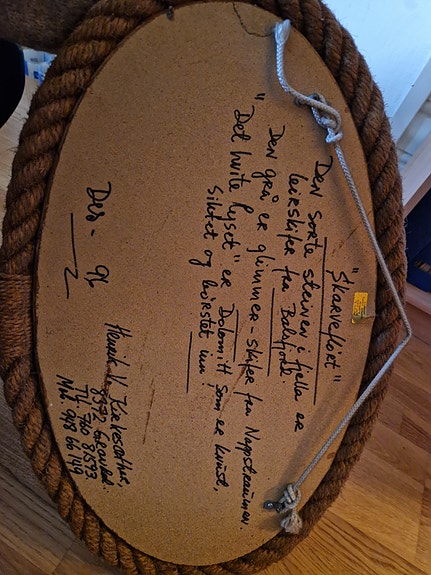 "Skarvefløtt"
Den sorte steinen i fjella er
leirskifer fra Balsfjord.
Den grå er glimmer-skifer fra Nappstraumen.
"Det hvite lyset" er Dolomitt som er knust,
Siktet og børstet inn!
Des- 92
Henrik V.
8372 Gravdal.
Tlf 760 81593
Mob. 948 66 140